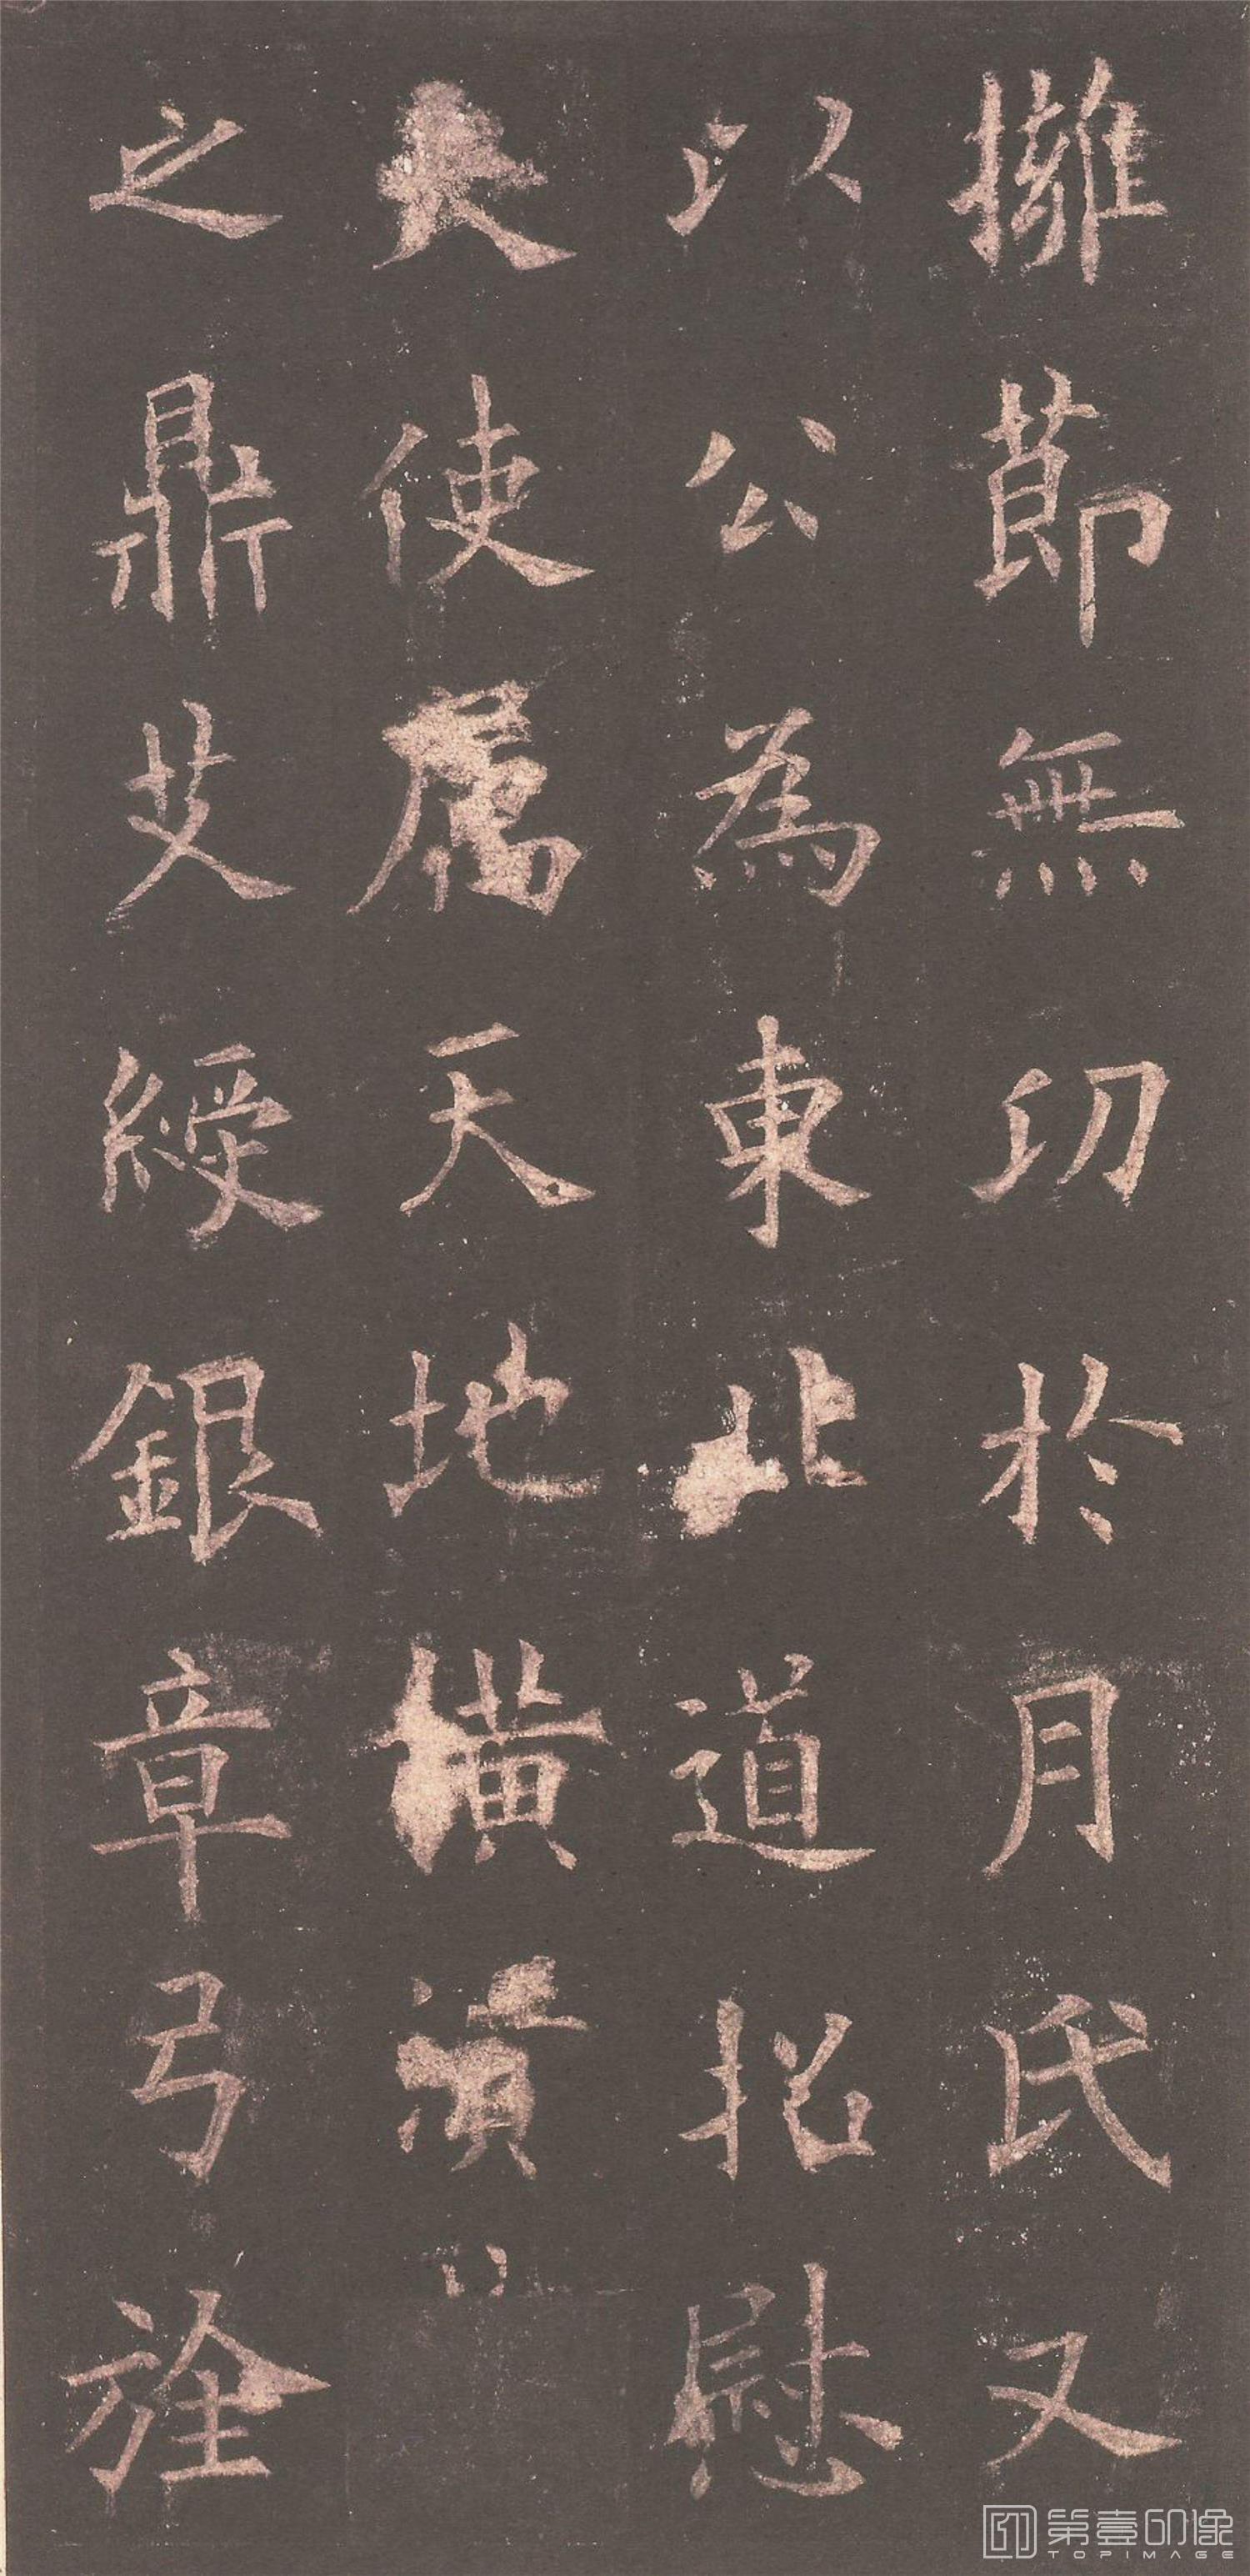 擁節無功於月氏又
以公為東北道招慰
大使属天地橫潰
之鼎艾綬銀章弓旌
第壹印像
TOPIMAGE